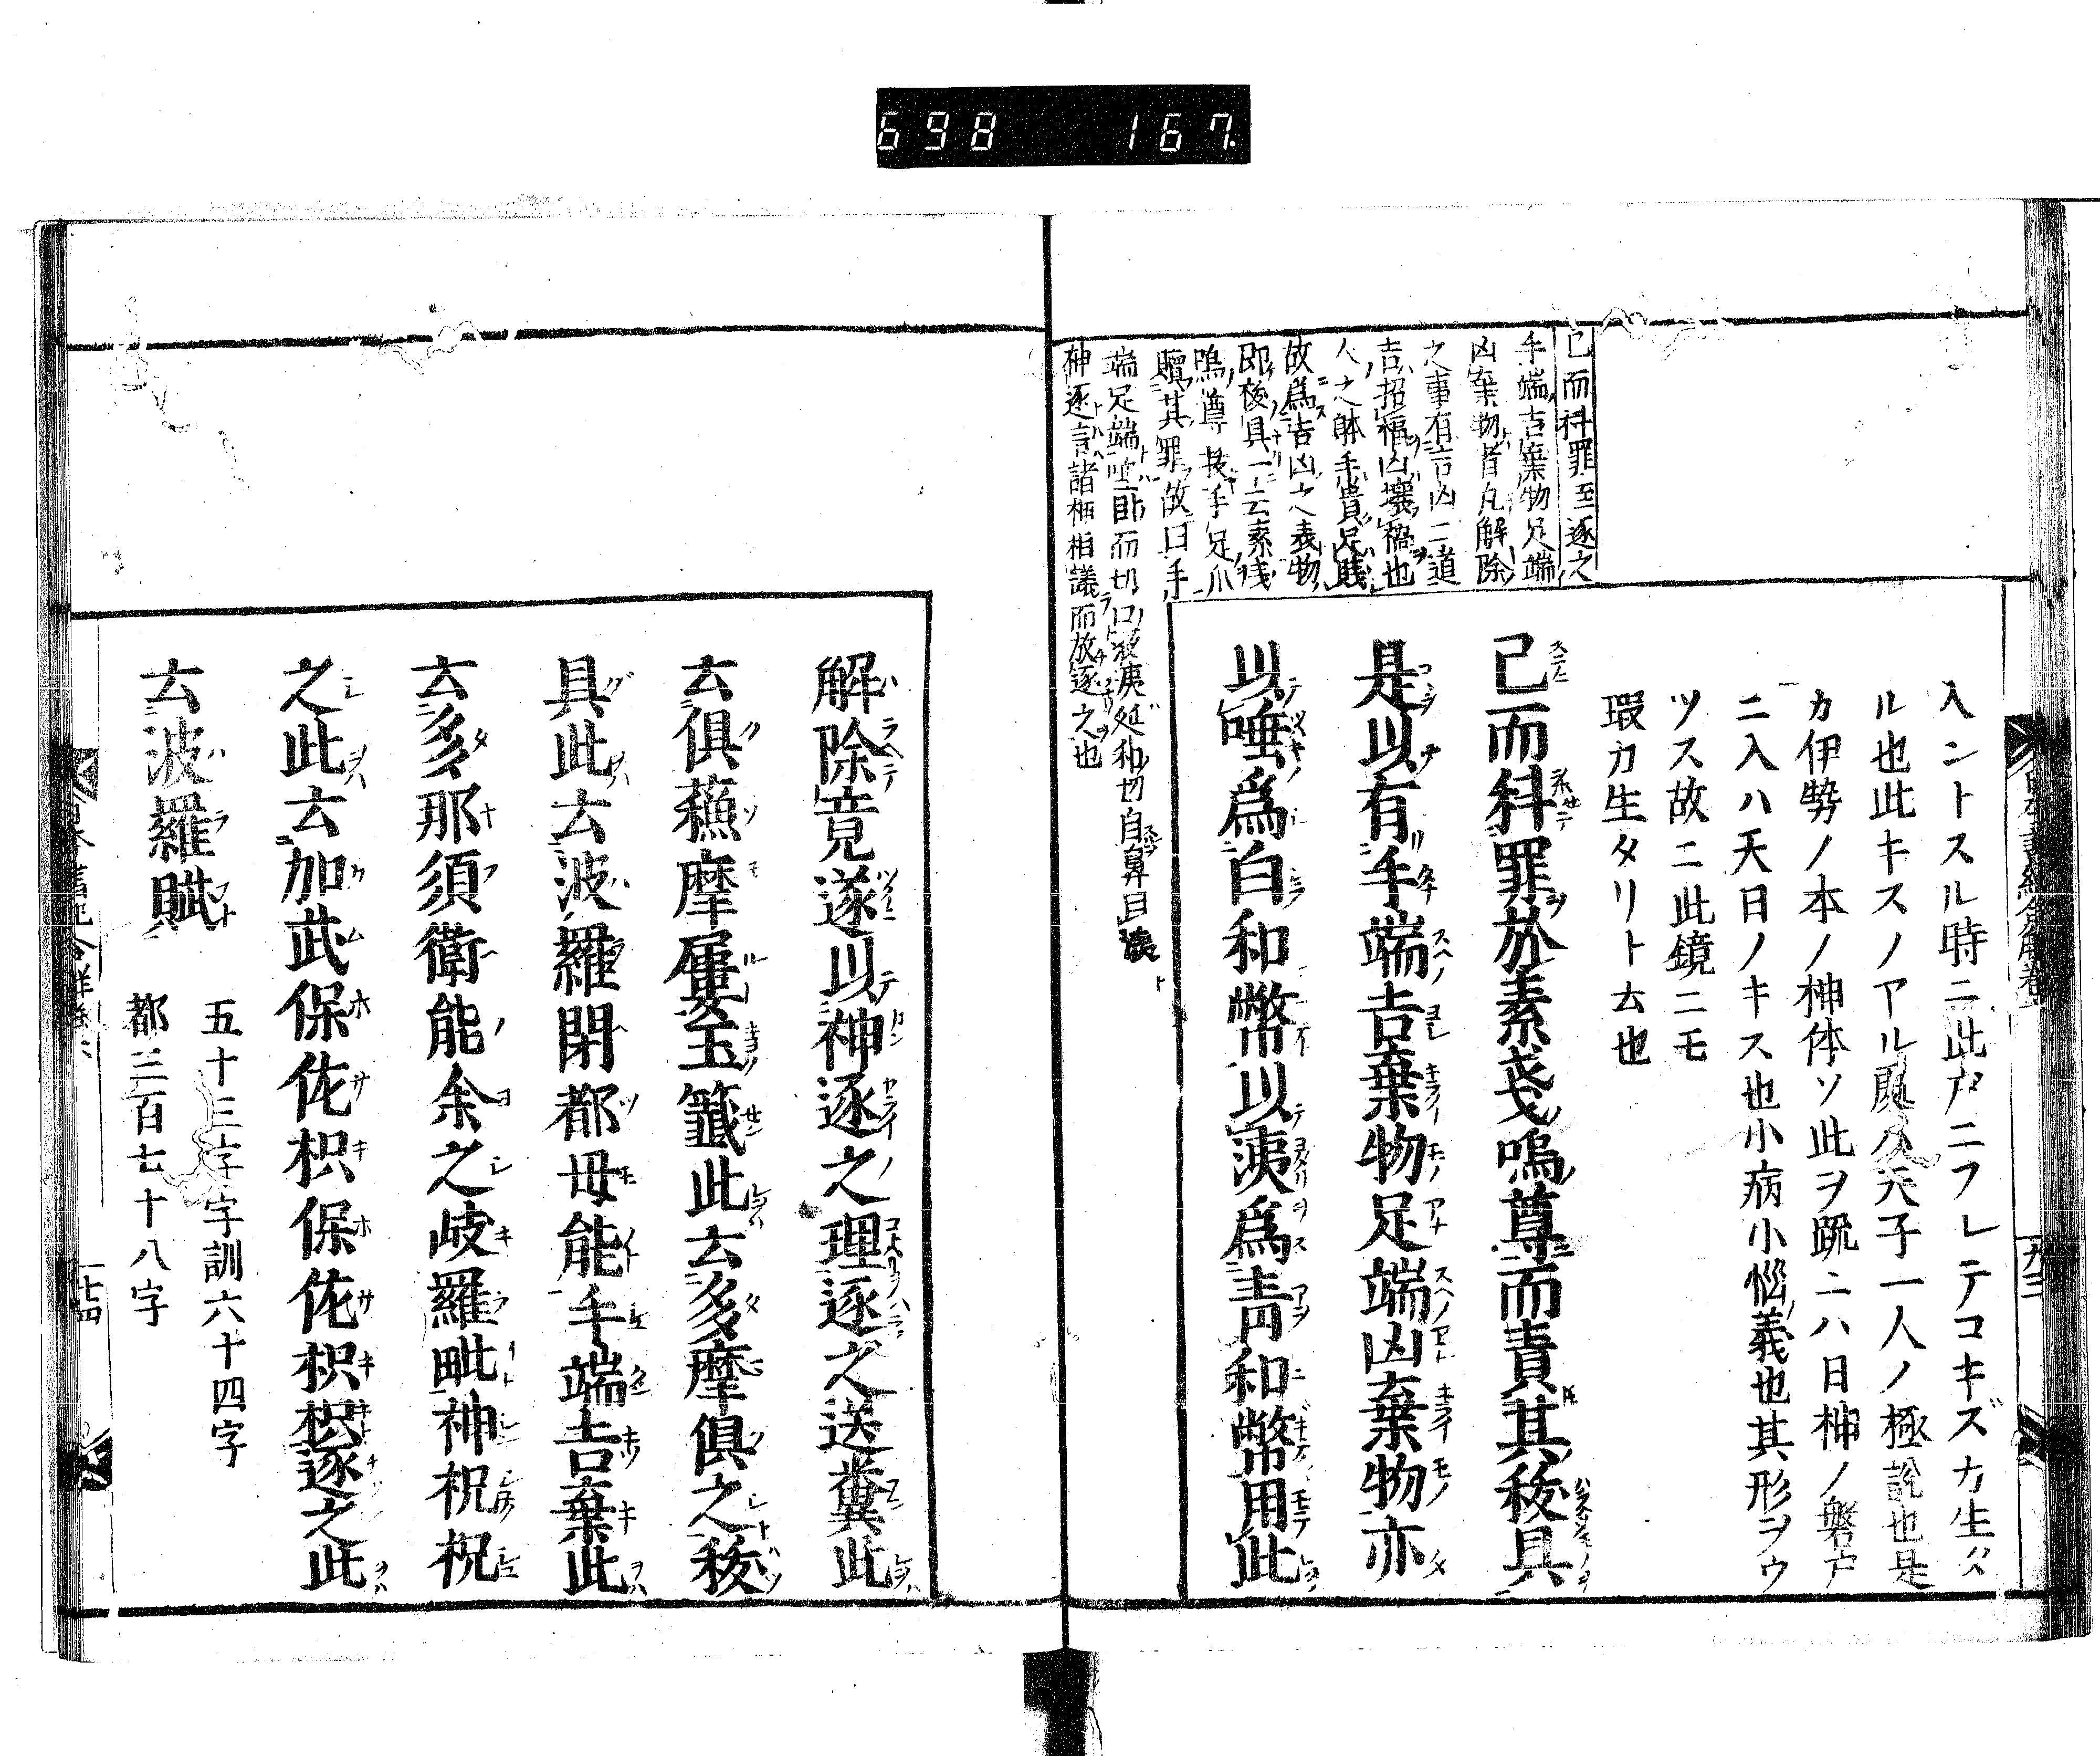 698 167.
已而科罪至逐之
手端吉棄物足端
凶棄物者凡解除
之事有吉凶二道
吉招福凶壤禍也
人之躰手貴足賤
故爲吉凶之表物
即稜具一云素戔
嗚尊抜手足爪
贖其罪故曰手
端足端唾
神逐言諸神相議而放逐之也
入ントスル時ニ此戸ニフレテコキズカ生タ
ル也此キスノアル處ハ天子一人ノ極說也是
カ伊勢ノ本ノ神体ソ此ヲ䟽ニハ日神ノ磐戸
ニ入ハ天日ノキス也小病小惱義也其形ヲウ
ツス故ニ此鏡ニモ
瑕カ生タリト云也
已而科罪於素戔嗚尊而責其稜具
是以有手端吉棄物足端凶棄物亦
以唾爲白和幣以洟爲青和幣用此
解除竟遂以神逐之理逐之送糞此
云俱蘓摩屢玉籤此云多摩俱之稜
具此云波羅閇都母能手端吉棄此
云多那須衛能余之岐羅毗神祝祝
之此云加武保佐枳保佐枳枳逐之此
云波羅賦
五十三字字訓六十四字
都三百七十八字